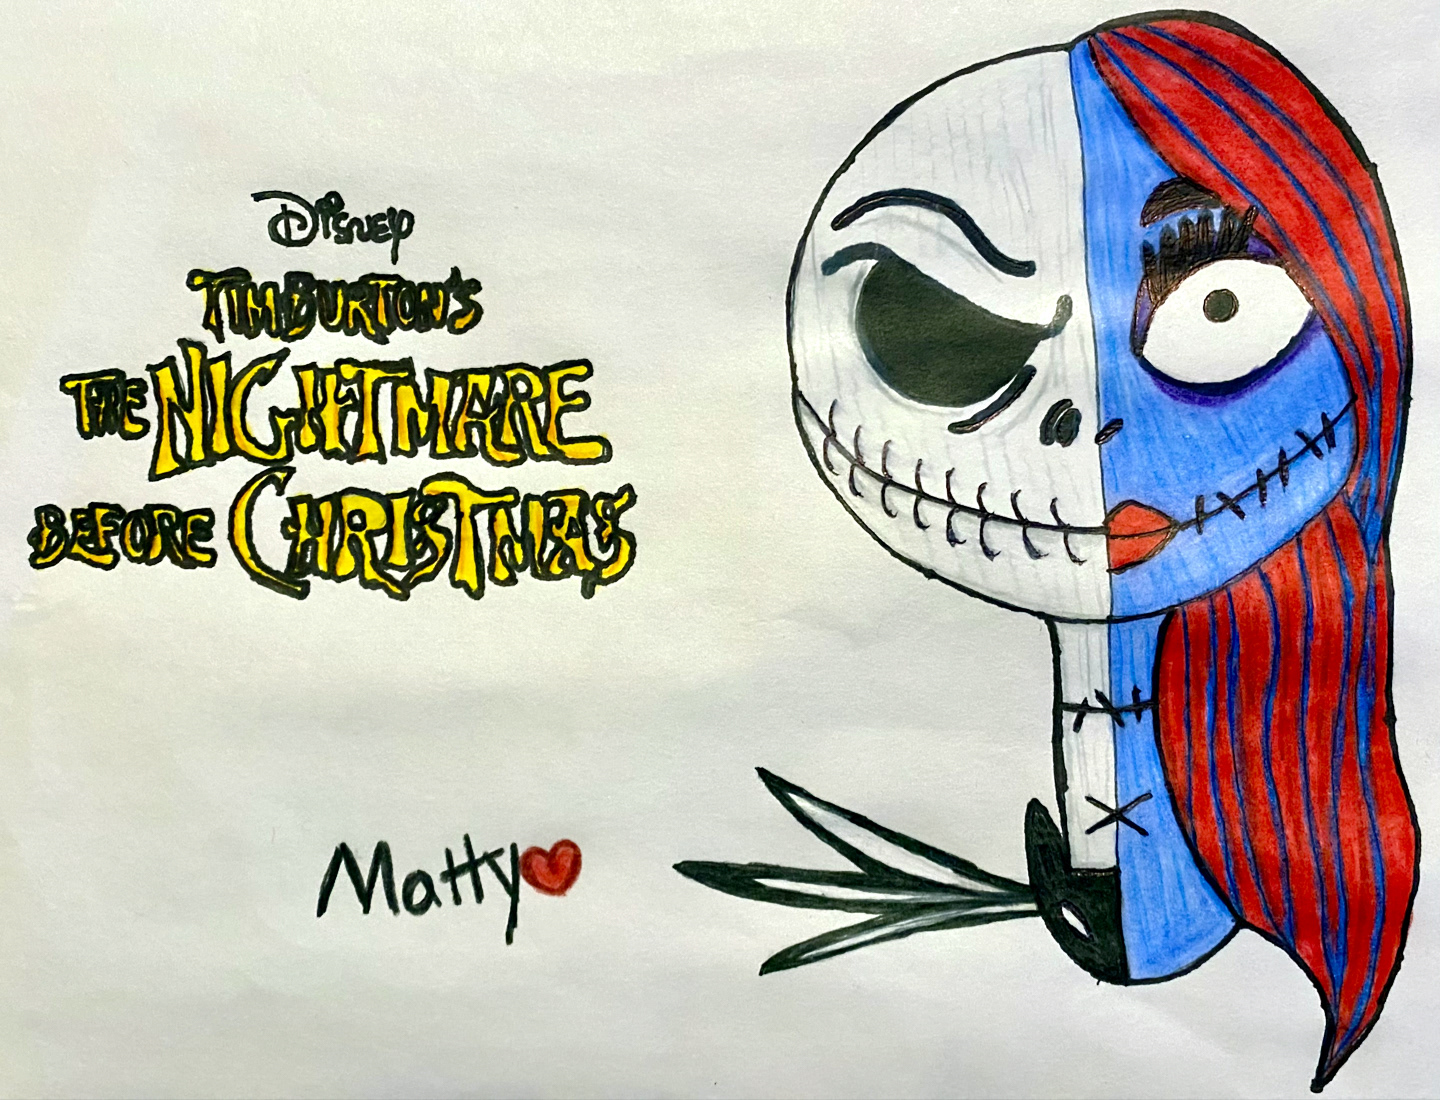 Disney
TIM BURTON'S
THE NIGHTMARE
BEFORE CHRISTMAS
Matty